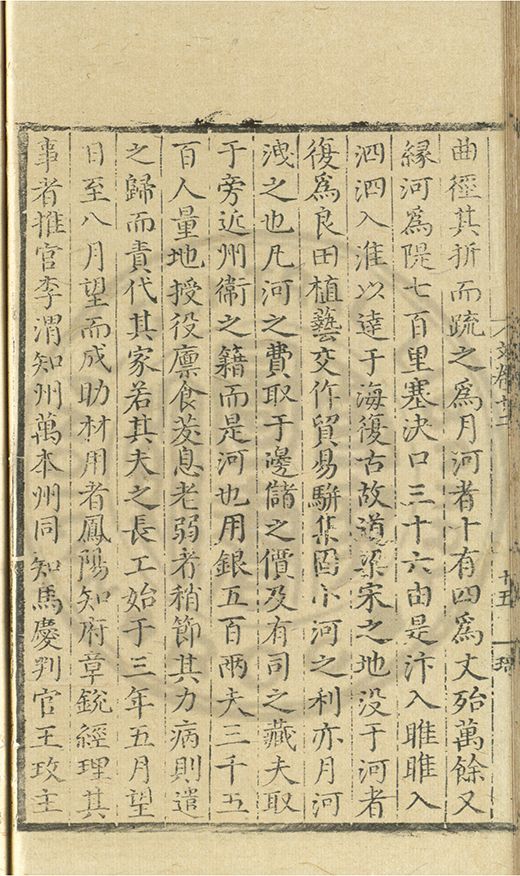 曲徑其折而疏之爲月河者十有四爲丈殆萬餘又
緣河爲隄七百里塞決口三十六由是汴入睢睢入
泗泗入淮以達于海復古故道梁宋之地没于河者
復爲良田植藝交作貿易駢集固小河之利亦月河
洩之也凡河之費取于邊儲之價及有司之藏夫取
于旁近州衞之籍而是河也用銀五百兩夫三千五
百人量地授役廪食茇息老弱者稍節其力病則遣
之歸而責代其家若其夫之長工始于三年五月望
日至八月望而成助材用者鳳陽知府章銳經理其
事者推官李渭知州萬本州同知馬慶判官王玫主
文卷十二
十五